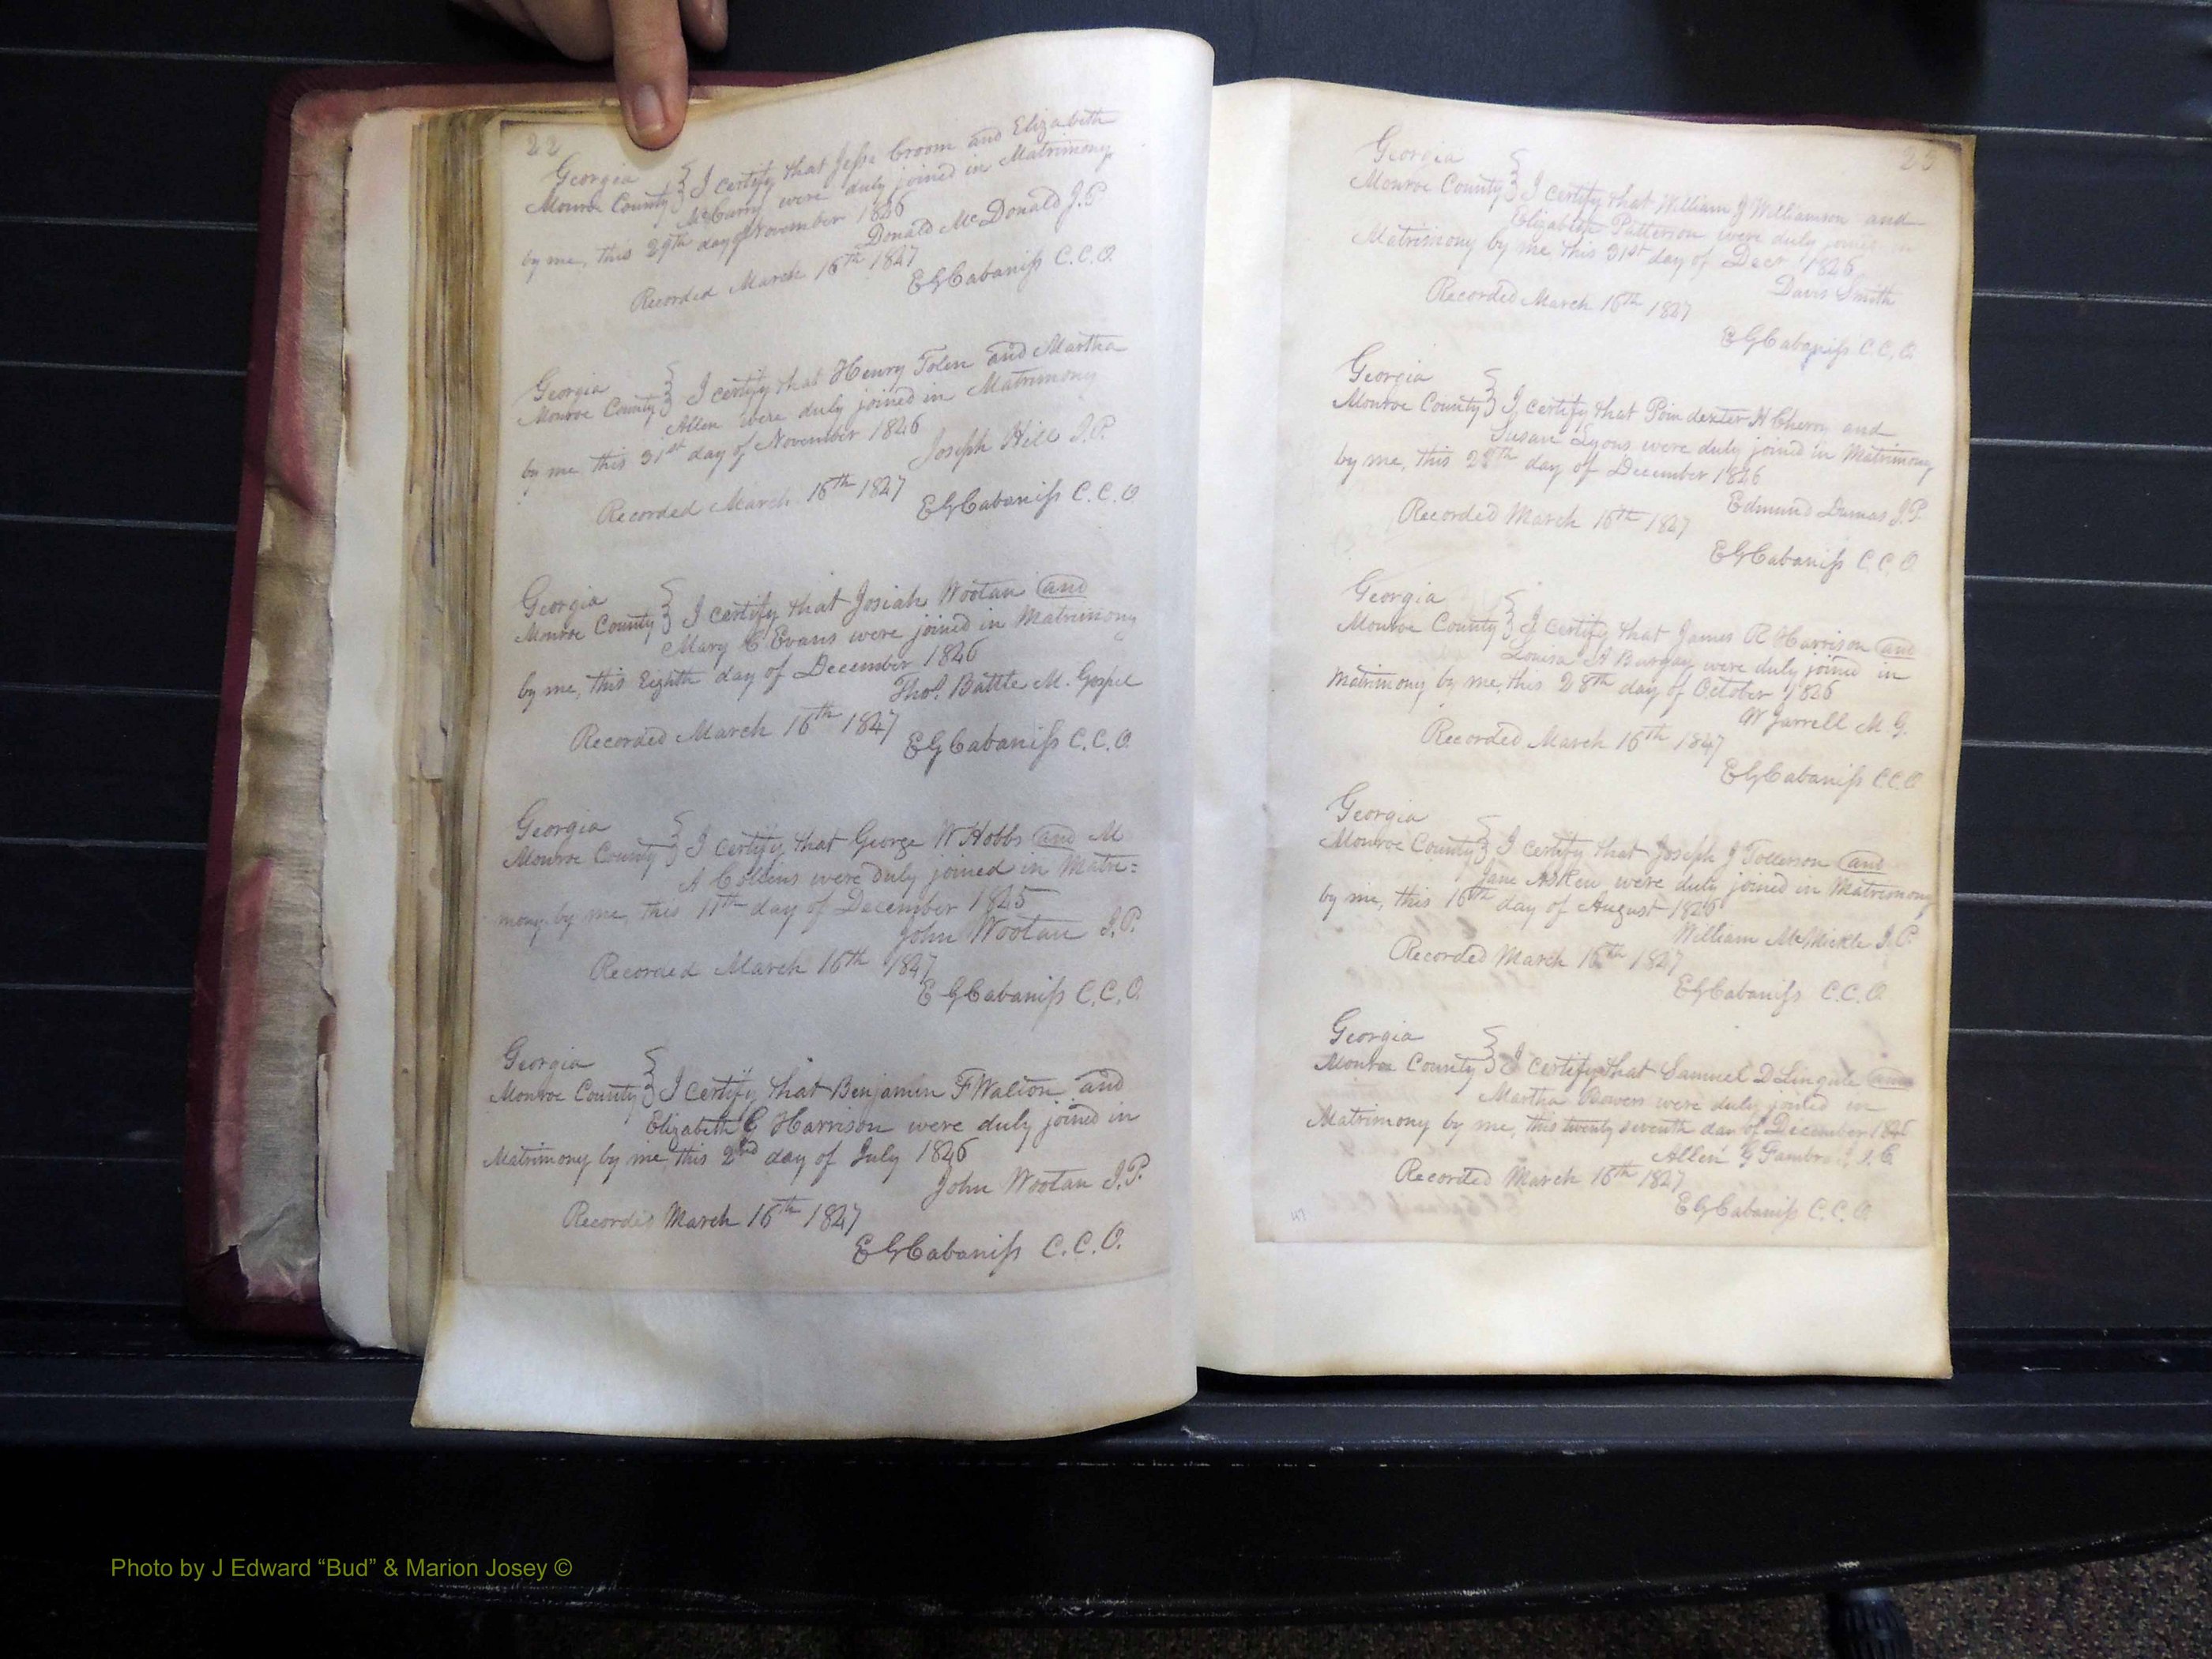 22
Georgia
Monroe County } I certify that Jesse Croom and Elizabeth
McCarny were duly joined in Matrimony
by me, this 29th day of November 1826
Donald McDonald J.P.
Recorded March 16th 1827
E G Cabaniss C.C.O.
Georgia
Monroe County } I certify that Henry Tolen and Martha
Allen were duly joined in Matrimony
by me this 31st day of November 1826
Joseph Hill J.P.
Recorded March 16th 1827
E G Cabaniss C.C.O
Georgia
Monroe County } I certify that Josiah Wootan and
Mary C Evans were joined in Matrimony
by me, this Eighth day of December 1826
Thos. Battle M. Gospel
Recorded March 16th 1827
E G Cabaniss C.C.O.
Georgia
Monroe County } I certify that George W Hobbs and M
A Collins were duly joined in Matri=
mony by me, this 11th day of December 1825
John Wootan J.P.
Recorded March 16th 1827
E G Cabaniss C.C.O.
Georgia
Monroe County } I certify that Benjamin F Walton and
Elizabeth G Harrison were duly joined in
Matrimony by me this 2nd day of July 1826
John Wootan J.P.
Recorded March 16th 1827
E G Cabaniss C.C.O.
23
Georgia
Monroe County } I certify that William J Williamson and
Elizabeth Patterson were duly joined in
Matrimony by me this 31st day of Decr 1826
Davis Smith
Recorded March 16th 1827
E G Cabaniss C.C.O.
Georgia
Monroe County } I certify that Poindexter H Cherry and
Susan Lyons were duly joined in Matrimony
by me, this 28th day of December 1826
Edmund Dumas J.P.
Recorded March 16th 1827
E G Cabaniss C.C.O.
Georgia
Monroe County } I certify that James R Harrison and
Louisa A Burgay were duly joined in
Matrimony by me, this 28th day of October 1826
W Jarrell M G.
Recorded March 16th 1827
E G Cabaniss C.C.O
Georgia
Monroe County } I certify that Joseph J Tollerson and
Jane Asken were duly joined in Matrimony
by me, this 16th day of August 1826
William McMickle J.P.
Recorded March 16th 1827
E G Cabaniss C.C.O.
Georgia
Monroe County } I certify that Samuel D Lingule and
Martha Bowers were duly joined in
Matrimony by me, this twenty seventh day of December 1826
Allen G
Recorded March 16th 1827
E G Cabaniss C.C.O.
Photo by J Edward “Bud” & Marion Josey ©